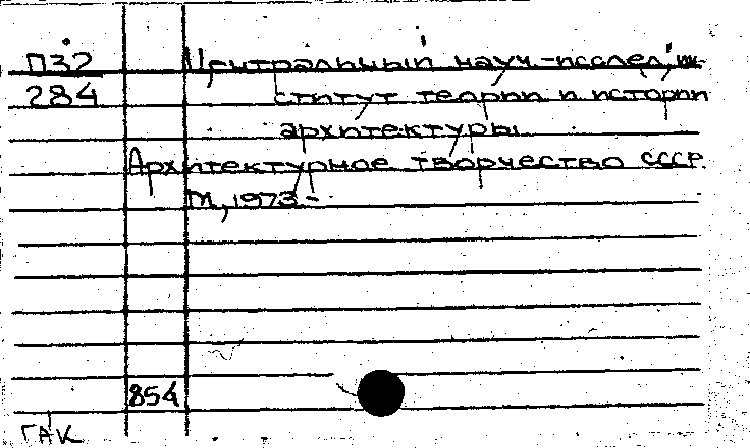 П32 Центральный науч.-исслед. ин-
284 ститут теории и истории
архитектуры.
Архитектурное творчество СССР
М., 1973.-
854
ГАК